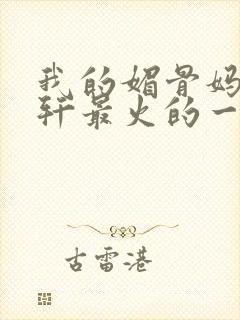 我的媚骨妈
轩最火的一
古雷港